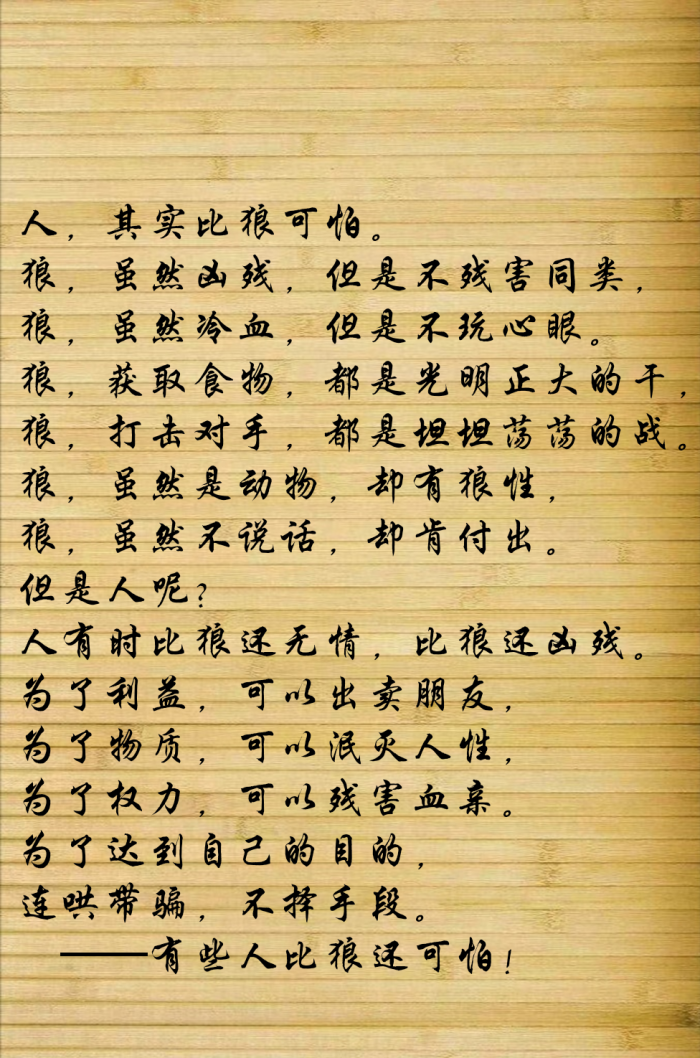 人，其实比狼可怕。
狼，虽然凶残，但是不残害同类，
狼，虽然冷血，但是不玩心眼。
狼，获取食物，都是光明正大的干，
狼，打击对手，都是坦坦荡荡的战。
狼，虽然是动物，却有狼性，
狼，虽然不说话，却肯付出。
但是人呢？
人有时比狼还无情，比狼还凶残。
为了利益，可以出卖朋友，
为了物质，可以泯灭人性，
为了权力，可以残害血亲。
为了达到自己的目的，
连哄带骗，不择手段。
——有些人比狼还可怕！